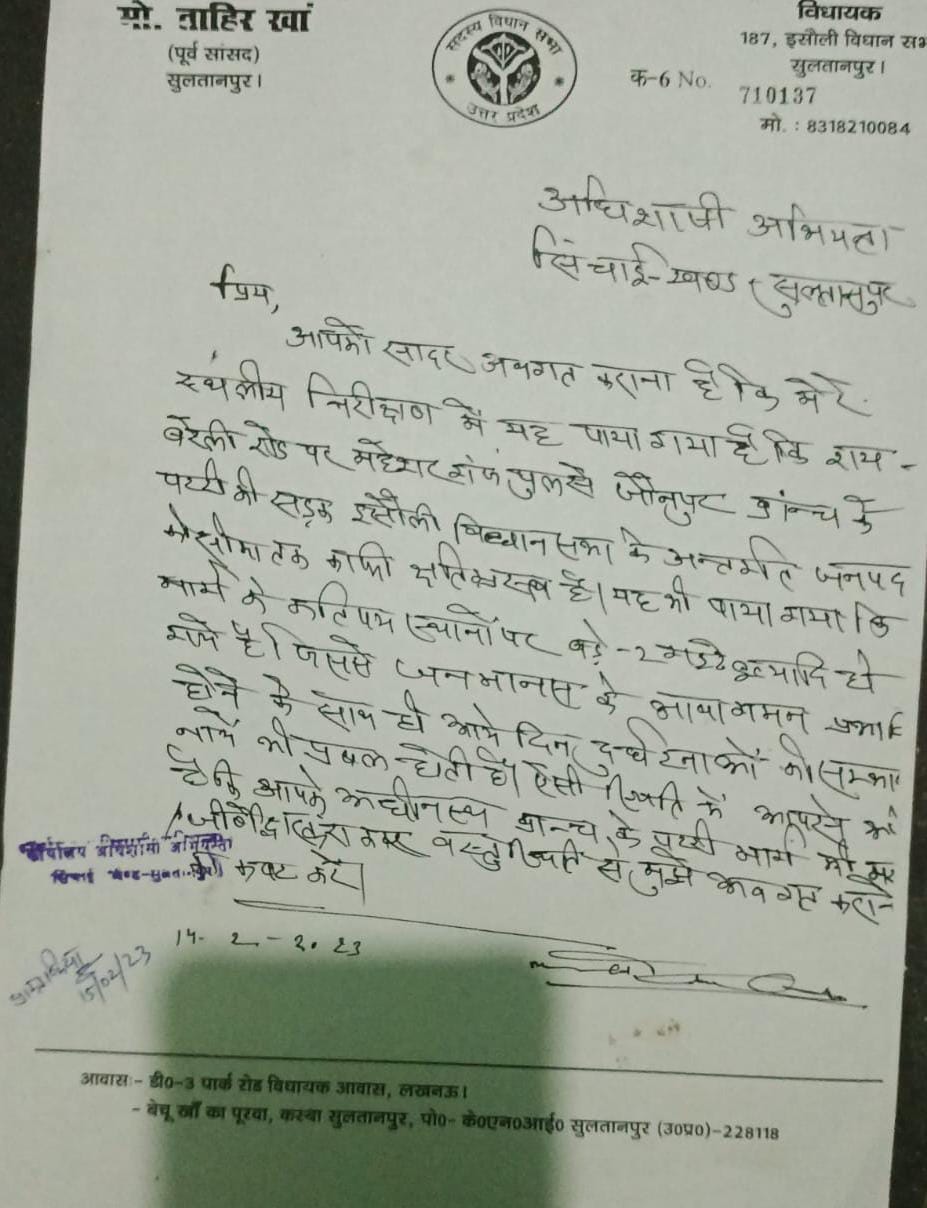 मो. ताहिर खां
(पूर्व सांसद)
सुलतानपुर।
सदस्य विधान सभा
उत्तर प्रदेश
विधायक
187, इसौली विधान सभ
सुलतानपुर।
क-6 No. 710137
मो. : 8318210084
अधिशाषी अभियन्ता
सिंचाई-खण्ड, सुल्तानपुर
प्रिय,
आपको सादर अवगत कराना है कि मेरे
स्थलीय निरीक्षण में यह पाया गया है कि राय-
बरेली रोड पर महेशर गंज पुल से जौनपुर ब्रान्च के
पटरी की सड़क इसौली विधान सभा के अन्तर्गत जनपद
के सीमा तक काफी क्षतिग्रस्त है। यह भी पाया गया कि
मार्ग के कतिपय स्थानों पर बड़े-2 गड्ढे इत्यादि हो
गये है। जिससे जनमानस के आवागमन प्रभावि
होने के साथ ही आये दिन दुर्घटनाओं की सम्भा
नायें भी प्रबल होती है। ऐसी स्थिति में आपसे
है कि आपके अधीनस्थ ब्रान्च के पटरी मार्ग की
जीर्णोद्धार करा कर वस्तुस्थिति से मुझे अवगत कराने
का कष्ट करें।
कार्यालय अधिशासी अभियन्ता
सिंचाई खण्ड-सुलतानपुर
14-2-2023
15/02/23
आवासः- डी0-3 पार्क रोड विधायक आवास, लखनऊ।
- बेचू खाँ का पूरवा, कस्बा सुलतानपुर, पो0- के0एन0आई0 सुलतानपुर (उ0प्र0)-228118